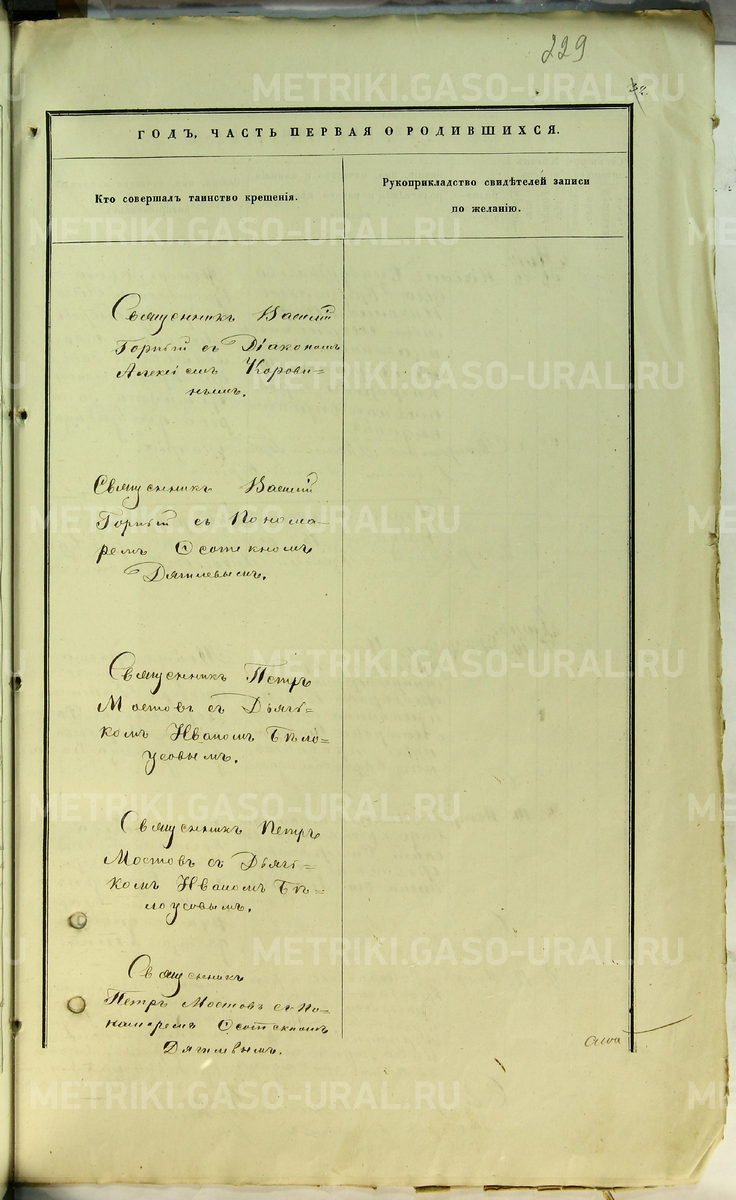 229
METRIKI.GASO-URAL.RU
ГОДЪ, ЧАСТЬ ПЕРВАЯ О РОДИВШИХСЯ.
Кто совершалъ таинство крещенія.
Рукоприкладство свидѣтелей записи
по желанію.
Священникъ Василій
Горный съ Діакономъ
Алексіемъ Корови=
нымъ.
Священникъ Василій
Горный съ Понома-
ремъ
Дягилевымъ.
Священникъ Петръ
Мостовъ съ Дьяч=
комъ Иваномъ Бѣло=
усовымъ.
Священникъ Петръ
Мостовъ съ Дьяч=
комъ Иваномъ Бѣ=
лоусовымъ.
Священникъ
Петръ Мостовъ съ По=
намаремъ
Дягилевымъ.